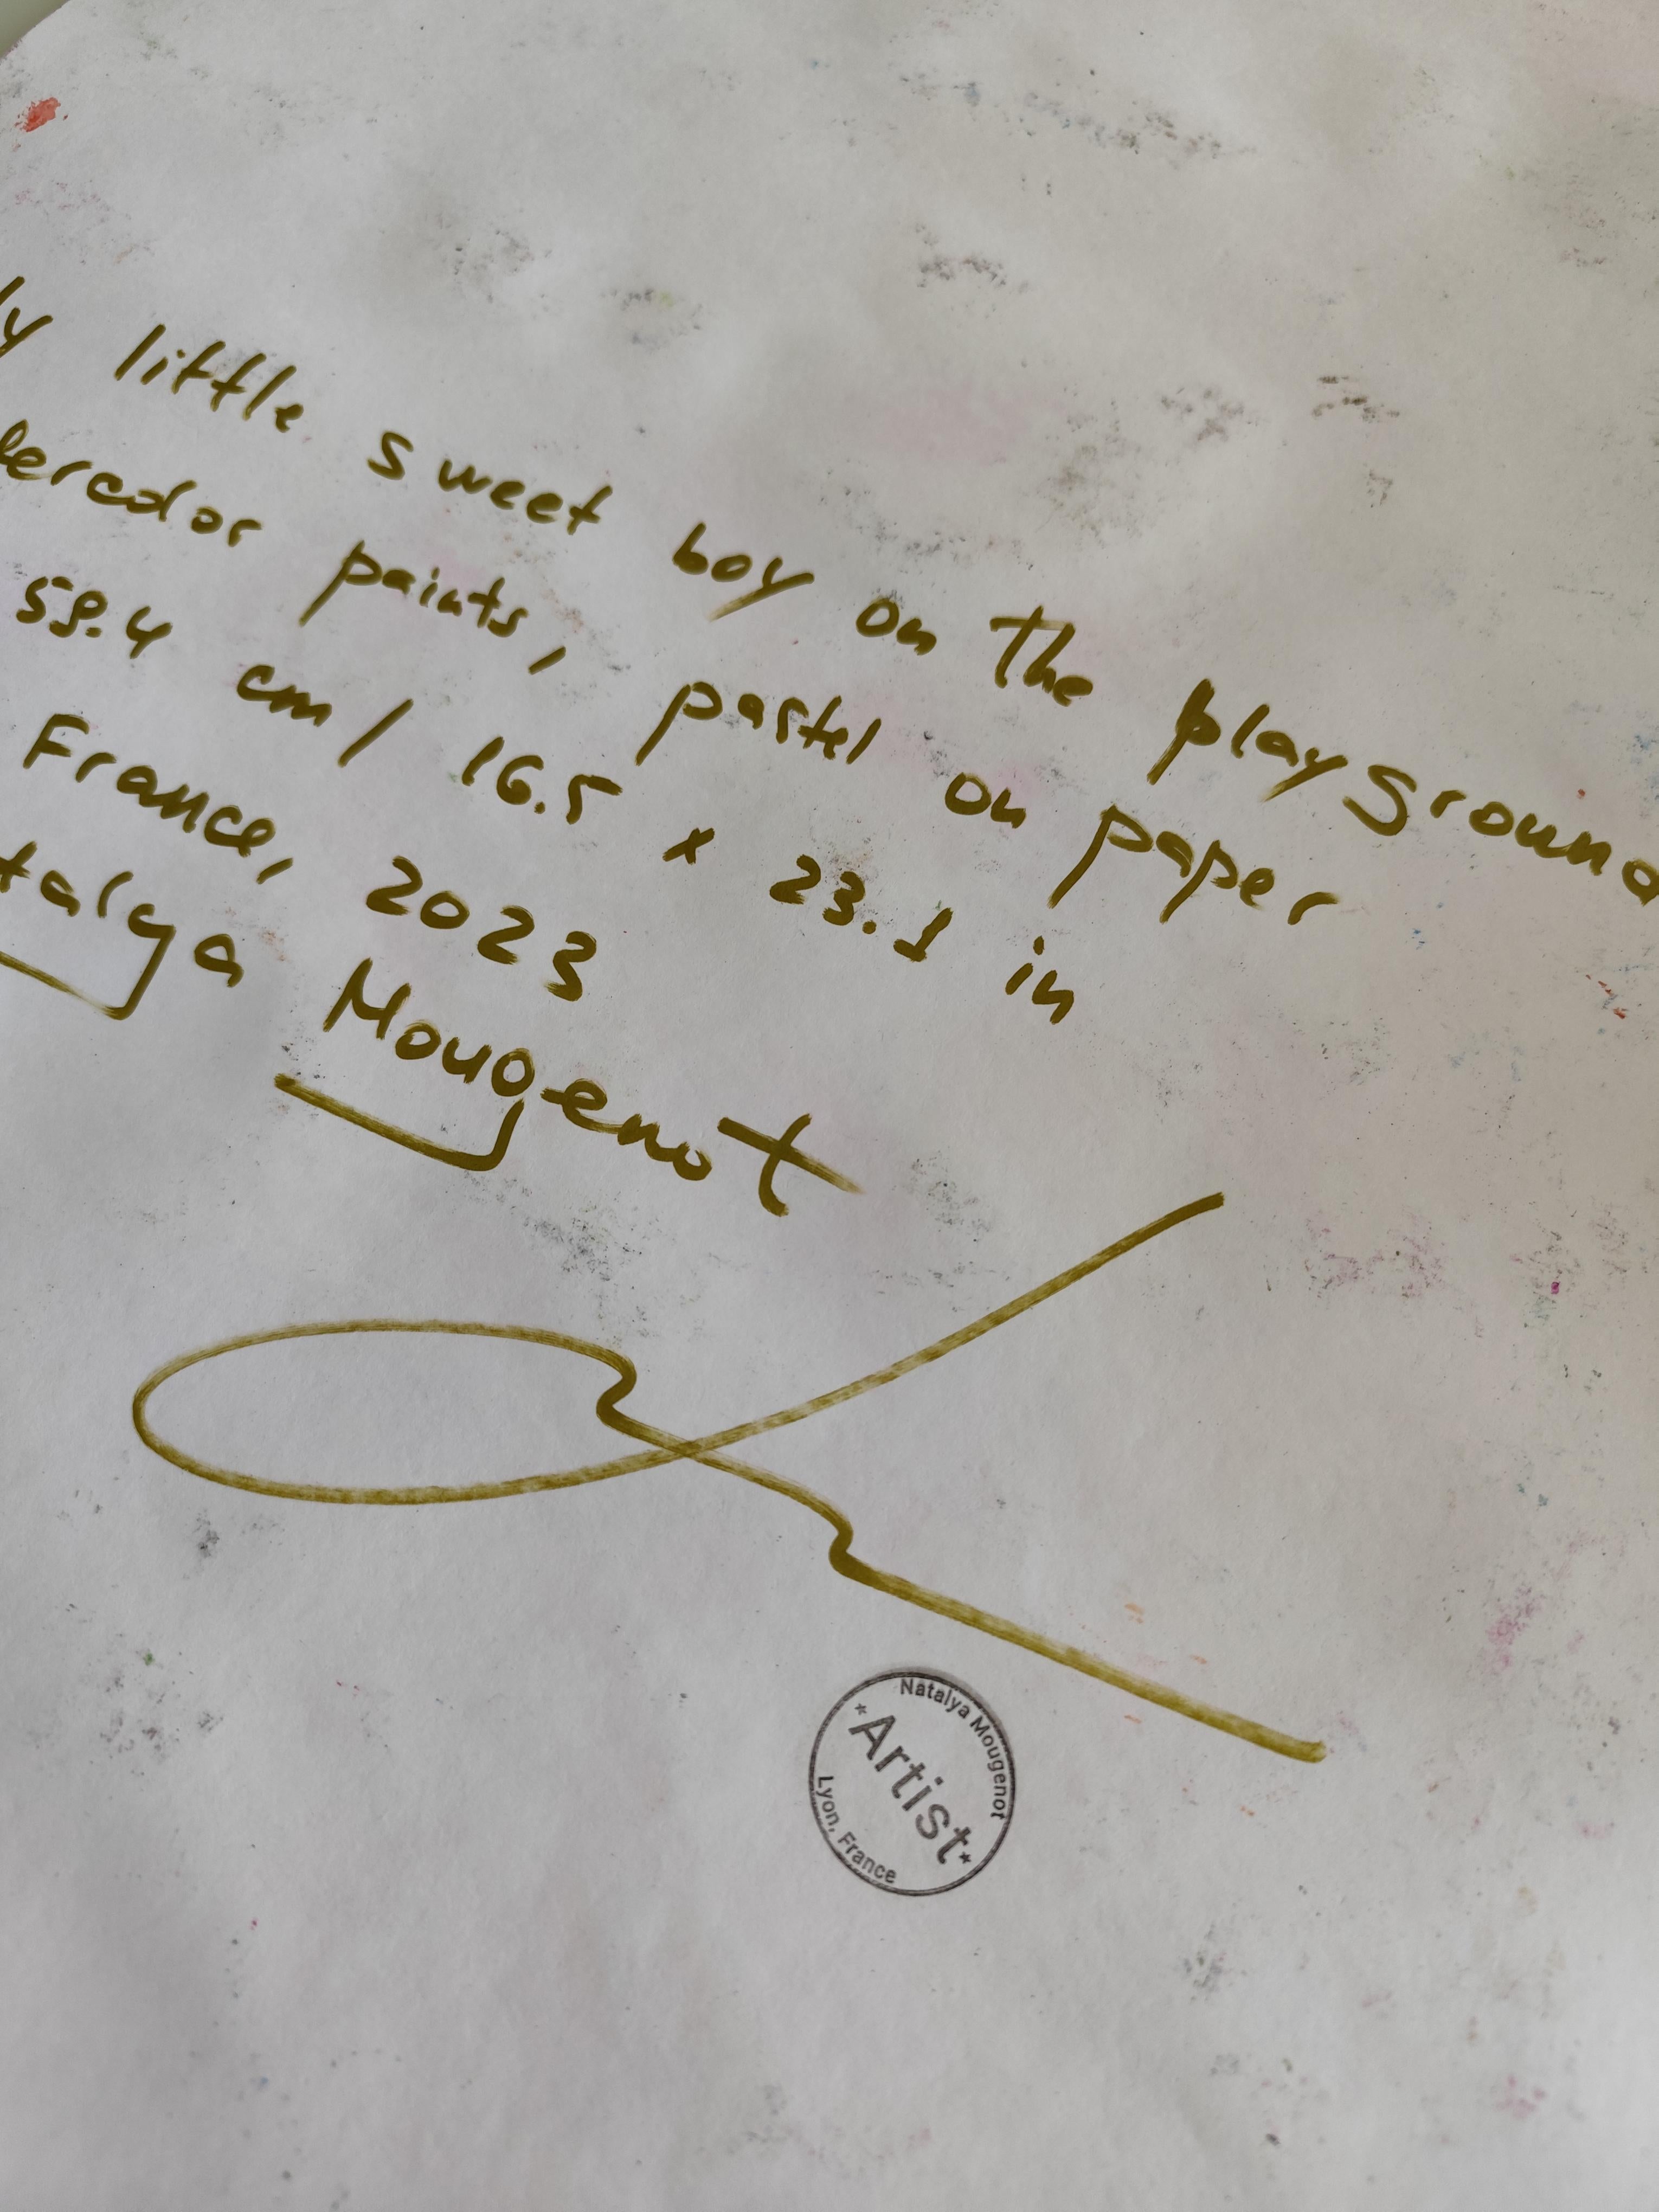 ly little sweet boy on the playground
tercolor paints, pastel on paper
59.4 cm / 16.5 x 23.1 in
France, 2023
talya Mougenot
Natalya Mougenot
*Artist*
Lyon, France